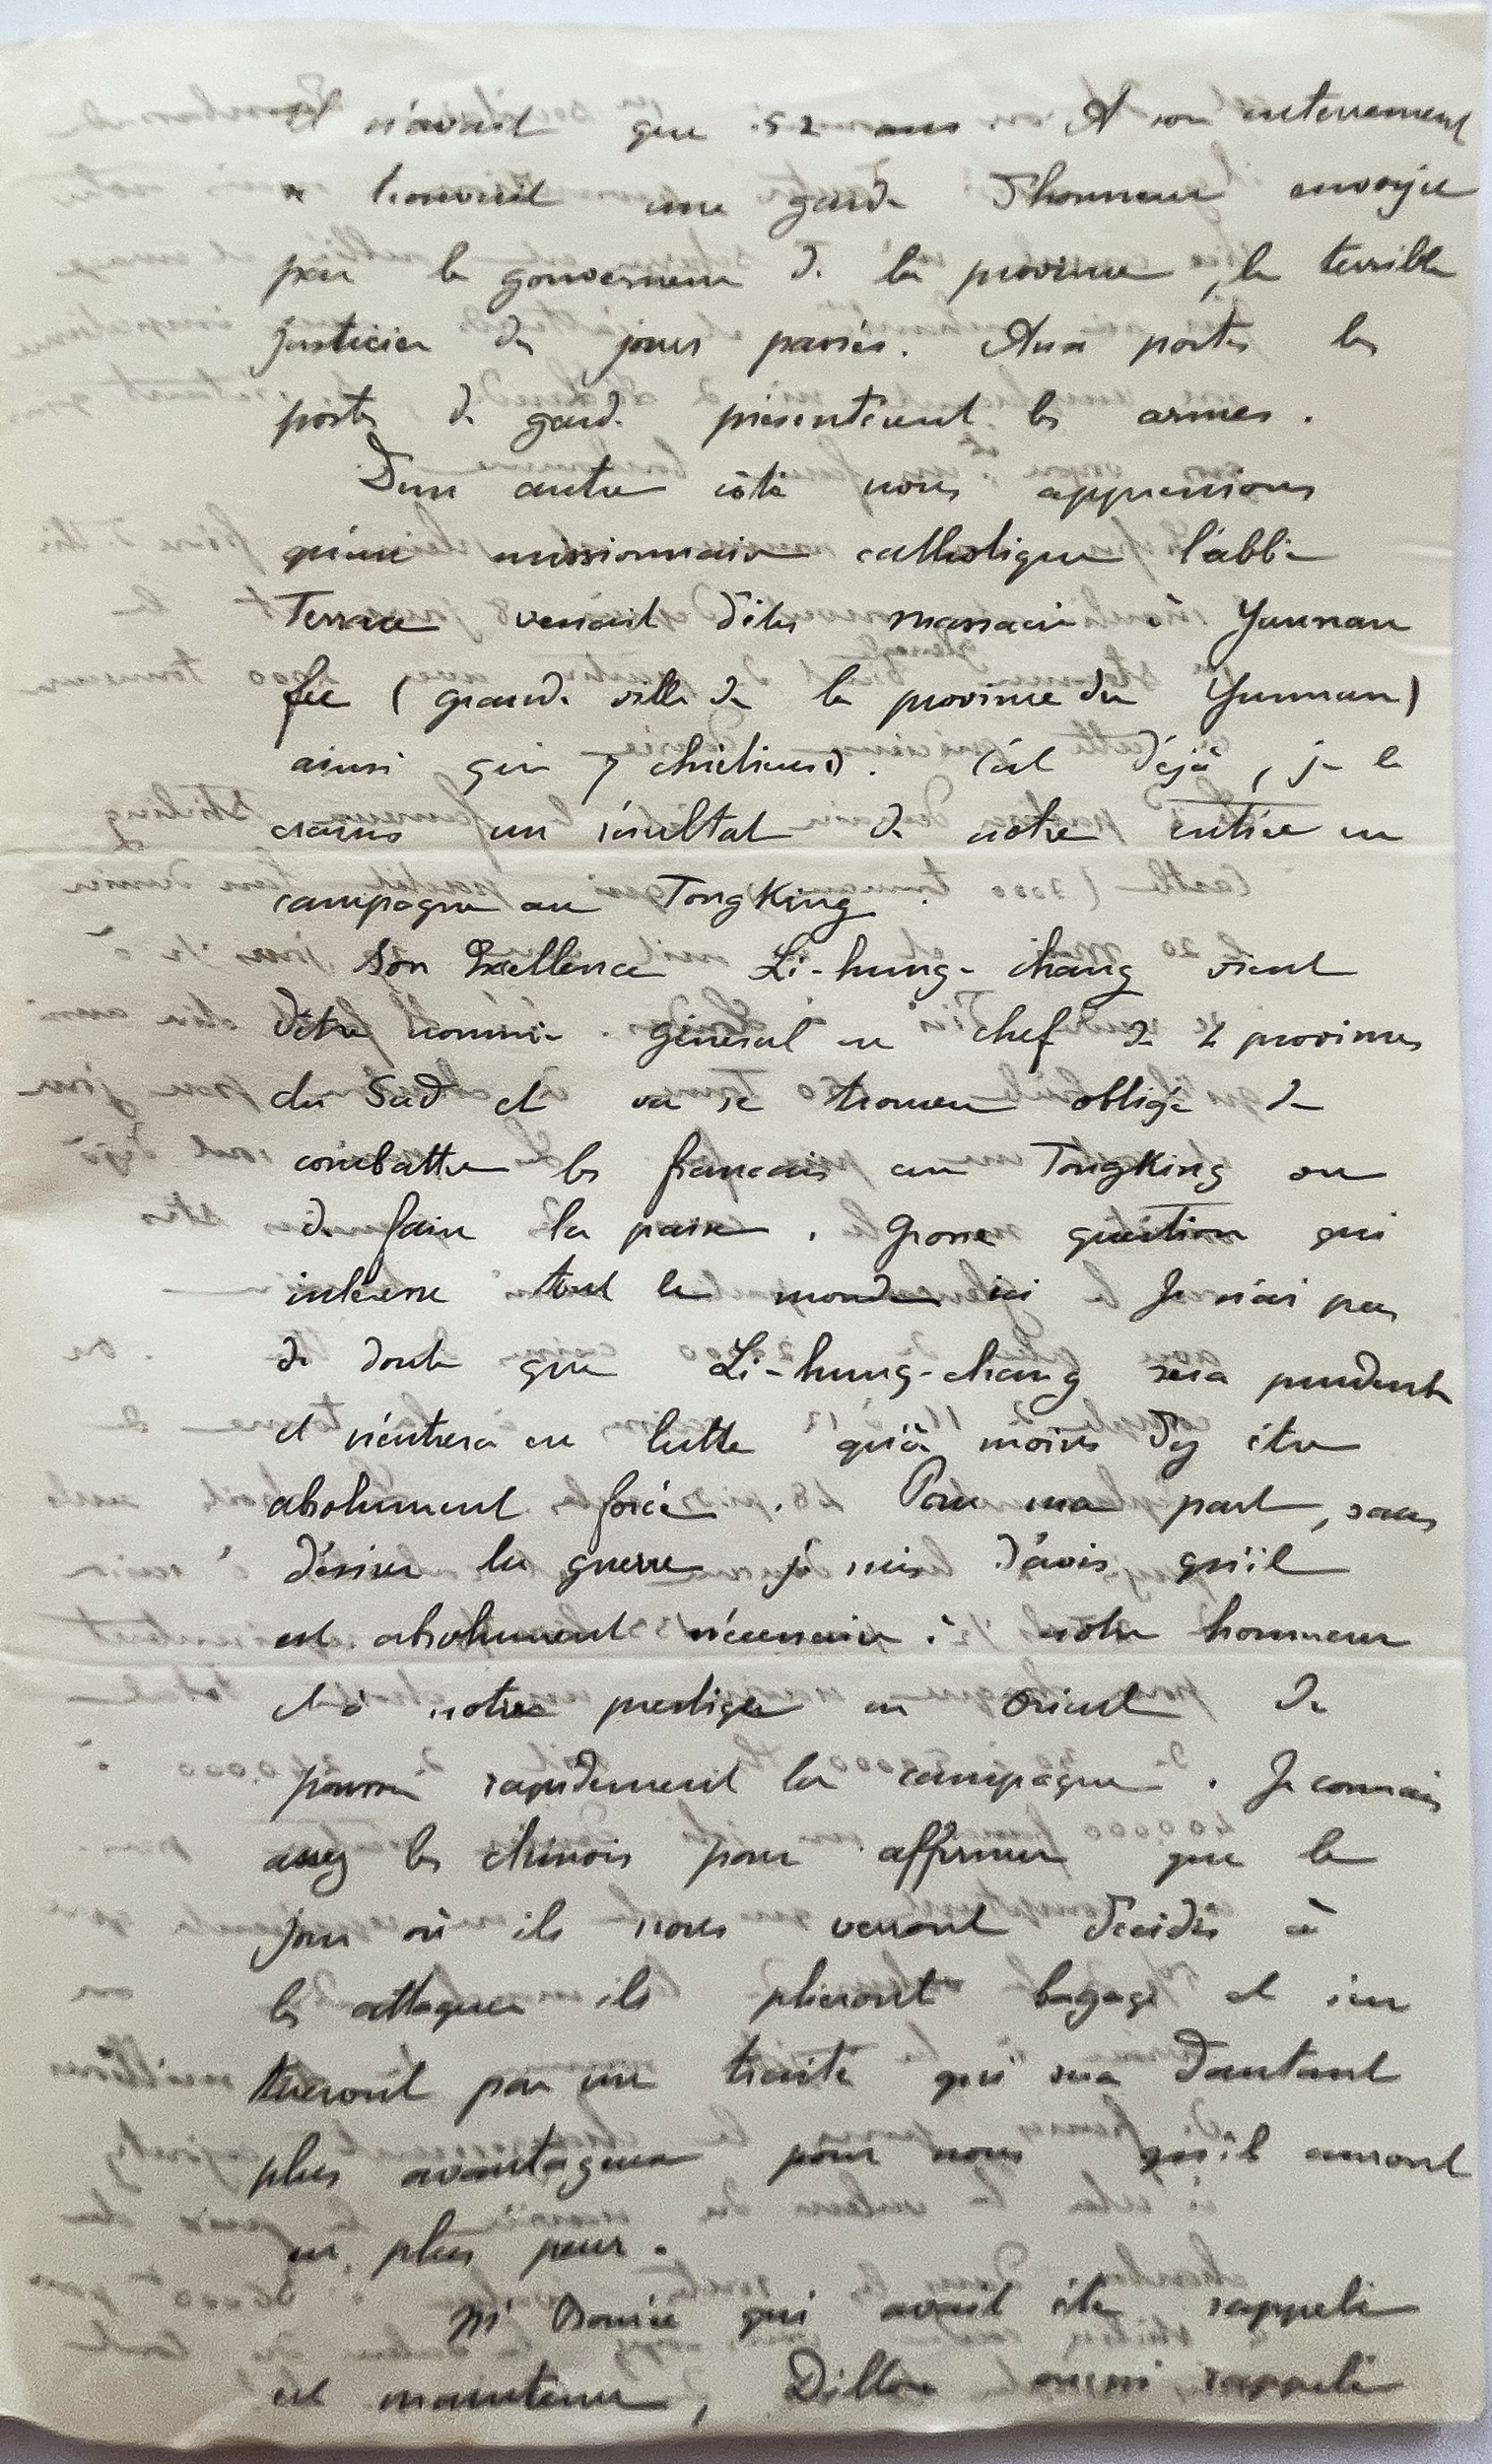 Il n'avait que 52 ans. A son enterrement
se trouvait une garde d'honneur envoyée
par le gouverneur de la province, le terrible
justicier des jours passés. Aux portes les
postes de garde présentèrent les armes.
D'un autre côté nous apprenions
qu'un missionnaire catholique l'abbé
Terrace venait d'être massacré à Yunnan
fu (grande ville de la province du Yunnan)
ainsi que 7 chrétiens. C'est déjà, je le
crains un résultat de notre entrée en
campagne au TongKing.
Son Excellence Li-hung-chang vient
d'être nommé général en chef de 4 provinces
du Sud et va se trouver obligé de
combattre les francais au TongKing ou
de faire la paix. Grosse question qui
intéresse tout le monde ici Je n'ai pas
de doute que Li-hung-chang sera prudent
et n'entrera en lutte qu'à moins d'y être
absolument forcé. Pour ma part, sans
désirer la guerre je suis d'avis qu'il
est absolument nécessaire à notre honneur
et à notre prestige en Orient de
pousser rapidement la campagne. Je connais
assez les chinois pour affirmer que le
jour où ils nous verront décidés à
les attaquer ils plieront bagage et s'en
tireront par un traité qui sera d'autant
plus avantageux pour nous qu'ils auront
eu plus peur.
Mr Bourée qui avait été rappelé
est maintenu, Dillon aussi rappelé